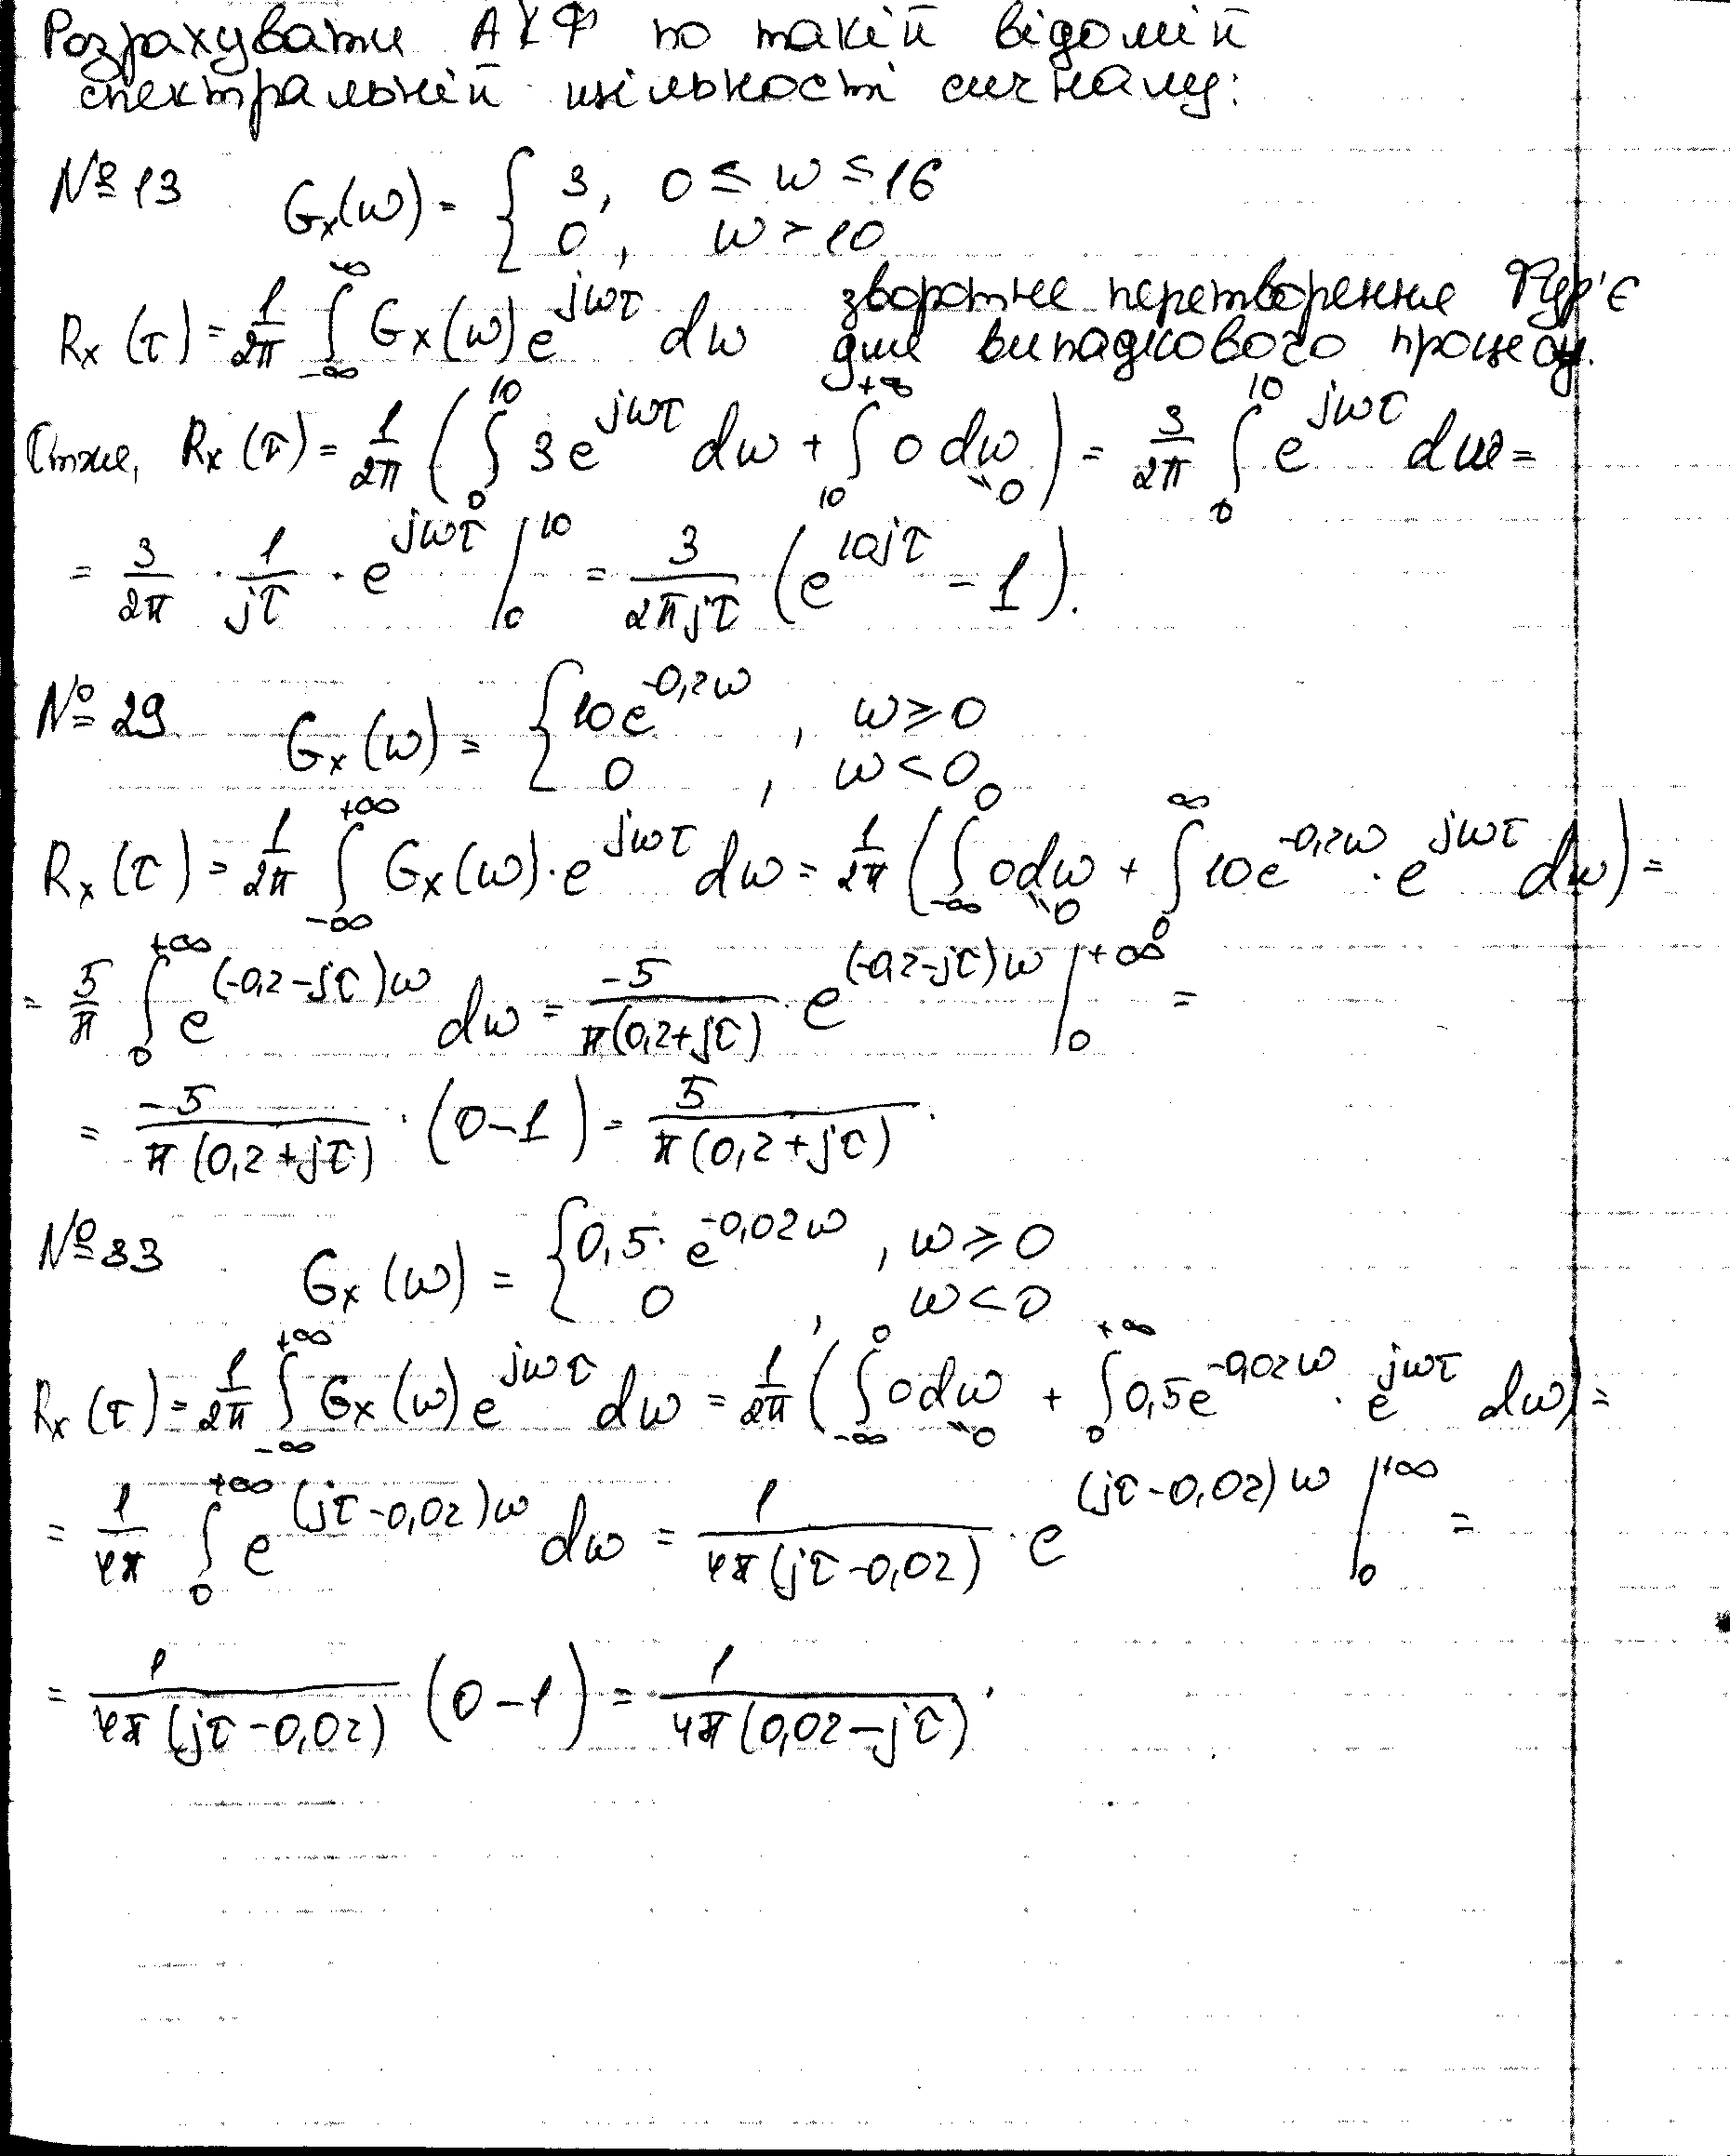 Розрахувати АКФ по такій відомій
спектральній щільності сигналу:
№13 Gx(ω) = { 3, 0 ≤ ω ≤ 16
0, ω > 10
Rx(τ) = 1/2π ∫_{-∞}^{∞} Gx(ω) e^{jωτ} dω зворотне перетворення Фур'є
для випадкового процесу.
Отже, Rx(τ) = 1/2π ( ∫_0^{10} 3e^{jωτ} dω + ∫_{10}^{+∞} 0 dω "0 ) = 3/2π ∫_0^{10} e^{jωτ} dω =
= 3/2π · 1/jτ · e^{jωτ} |_0^{10} = 3/2πjτ (e^{10jτ} - 1).
№29 Gx(ω) = { 10e^{-0,2ω}, ω ≥ 0
0, ω < 0
Rx(τ) = 1/2π ∫_{-∞}^{+∞} Gx(ω)·e^{jωτ} dω = 1/2π ( ∫_{-∞}^0 0dω "0 + ∫_0^∞ 10e^{-0,2ω} · e^{jωτ} dω ) =
= 5/π ∫_0^{+∞} e^{(-0,2-jτ)ω} dω = -5/π(0,2+jτ) · e^{(-0,2-jτ)ω} |_0^{+∞} =
= -5/π(0,2+jτ) · (0-1) = 5/π(0,2+jτ).
№33 Gx(ω) = { 0,5· e^{-0,02ω}, ω ≥ 0
0, ω < 0
Rx(τ) = 1/2π ∫_{-∞}^{+∞} Gx(ω) e^{jωτ} dω = 1/2π ( ∫_{-∞}^0 0dω "0 + ∫_0^{+∞} 0,5e^{-0,02ω} · e^{jωτ} dω ) =
= 1/4π ∫_0^{+∞} e^{(jτ-0,02)ω} dω = 1/4π(jτ-0,02) · e^{(jτ-0,02)ω} |_0^{+∞} =
= 1/4π(jτ-0,02) (0-1) = 1/4π(0,02-jτ).